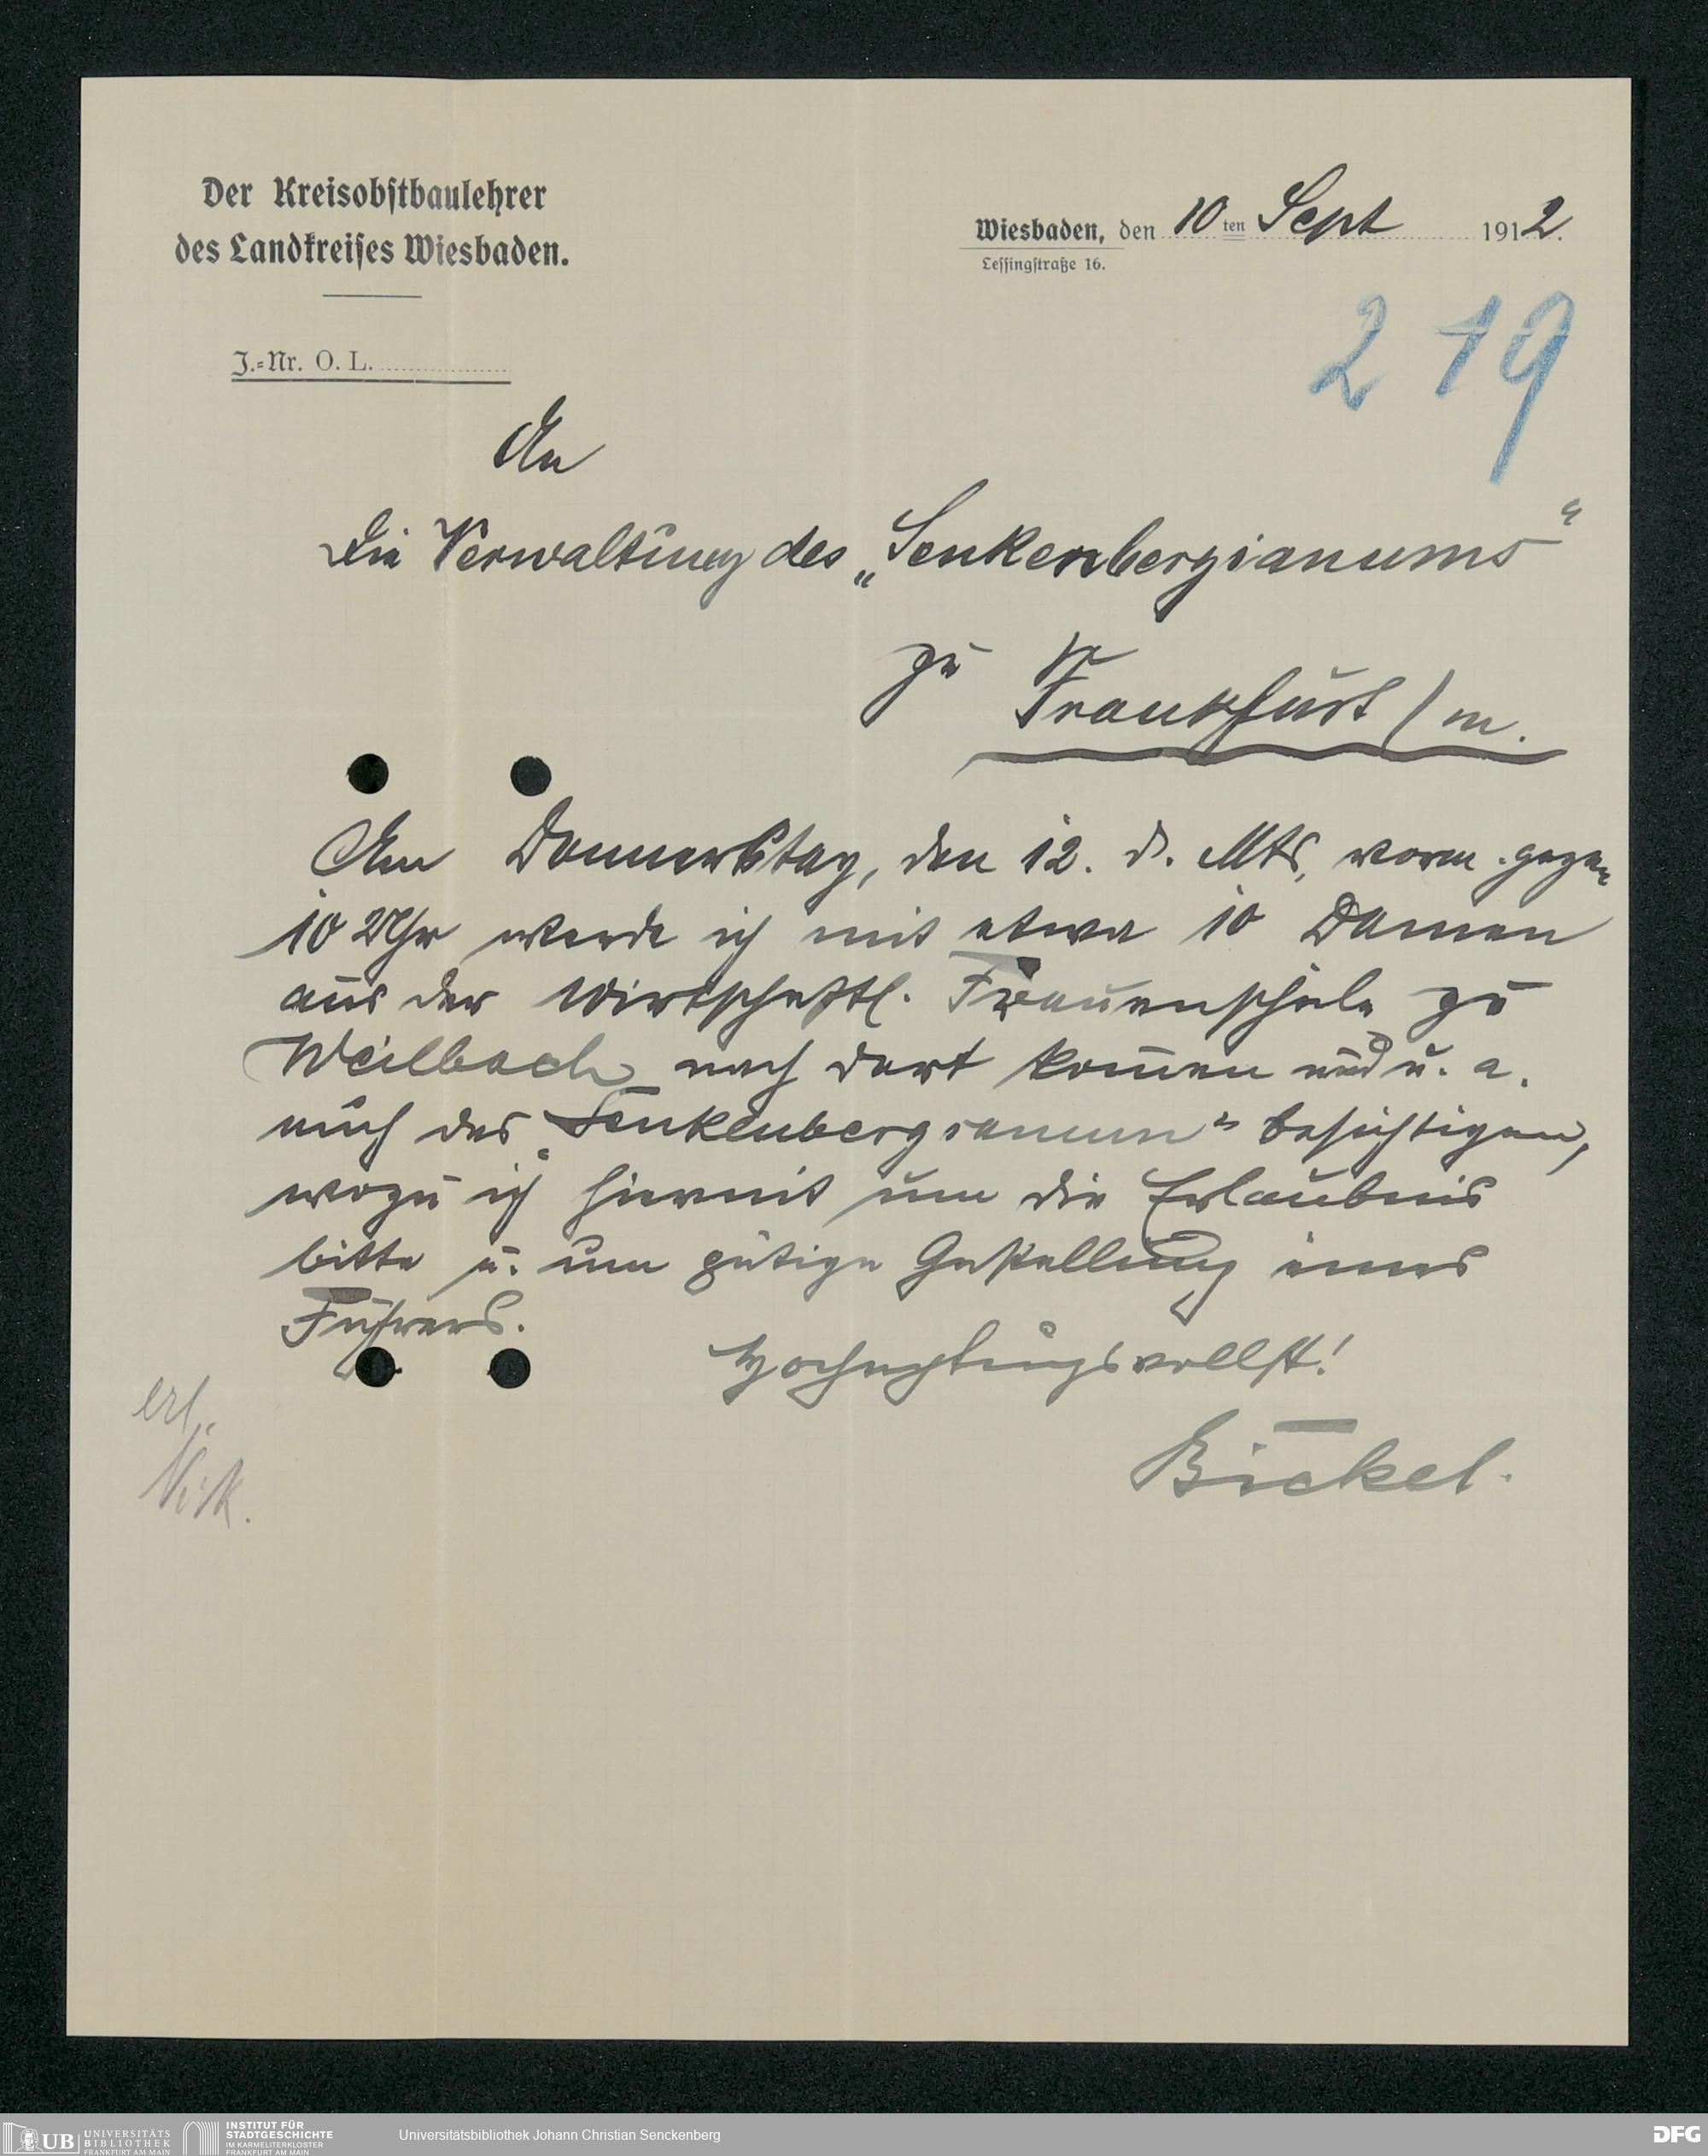 Der Kreisobstbaulehrer
des Landkreises Wiesbaden.
J.=Nr. O. L.
Wiesbaden, den 10 ten Sept 1912.
Lessingstraße 16.
219
An
die Verwaltung des „Senkenbergianums“
zu Frankfurt / M.
Am Donnerstag, den 12. d. Mts, vorm. gegen
10 Uhr werde ich mit etwa 10 Damen
aus der Wirtschaftl. Frauenschule zu
Weilbach nach dort kom̄en und u. a.
auch das „Senkenbergianum“ besichtigen,
wozu ich hiermit um die Erlaubnis
bitte u. um gütige Gestellung eines
Führers.
Hochachtungsvollst!
Bickel.
erl.
UNIVERSITÄTS
BIBLIOTHEK
FRANKFURT AM MAIN
UB
INSTITUT FÜR
STADTGESCHICHTE
IM KARMELITERKLOSTER
FRANKFURT AM MAIN
Universitätsbibliothek Johann Christian Senckenberg
DFG